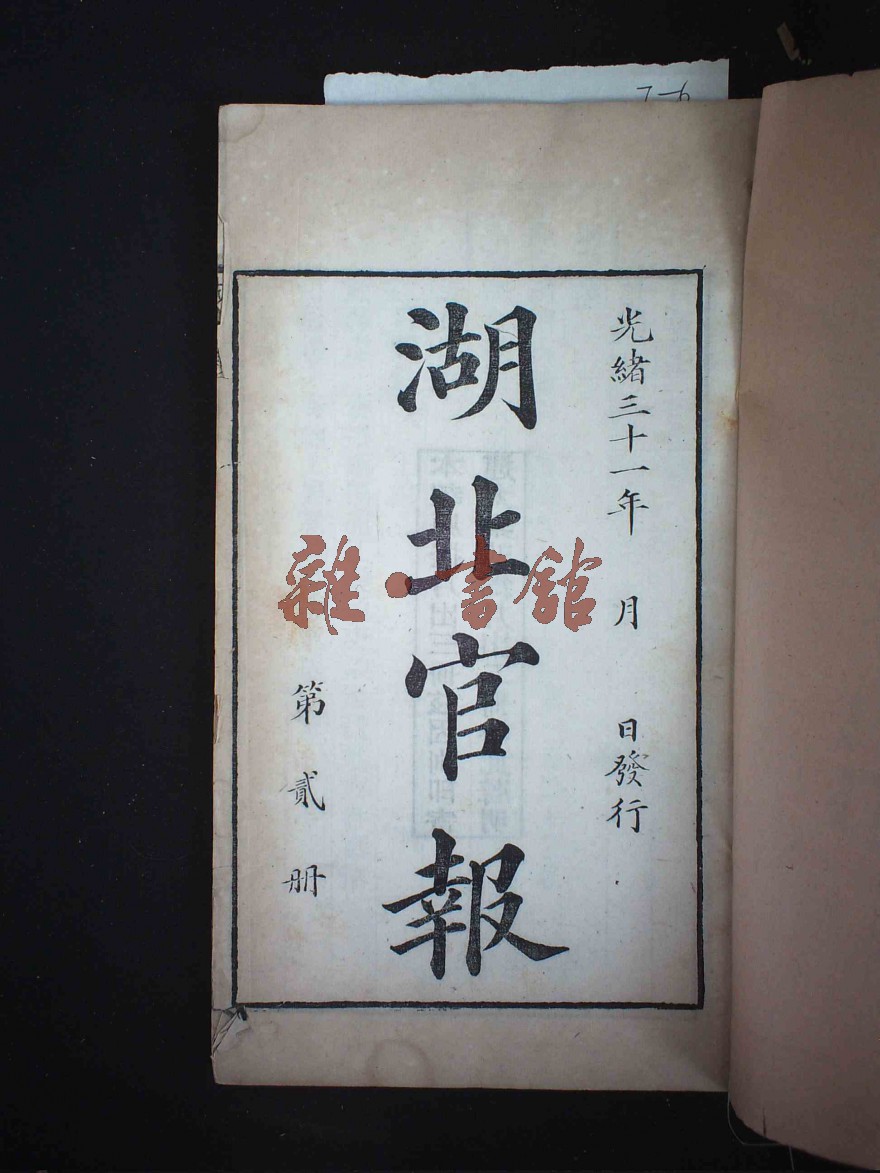 光緒三十一年　月　日發行
湖北官報
第貳册
雜·書館